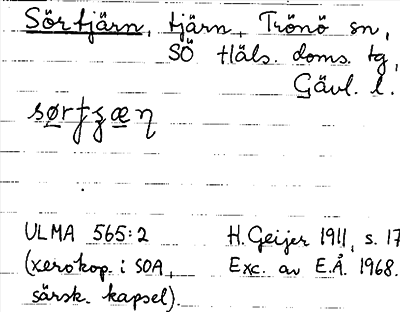 Sörtjärn, tjärn, Trönö sn,
SÖ Häls. doms. tg,
Gävl. l.
ULMA 565:2 H. Geijer 1911, s. 17
(xerokop. i SOA, Exc. av E.Å. 1968.
särsk. kapsel).